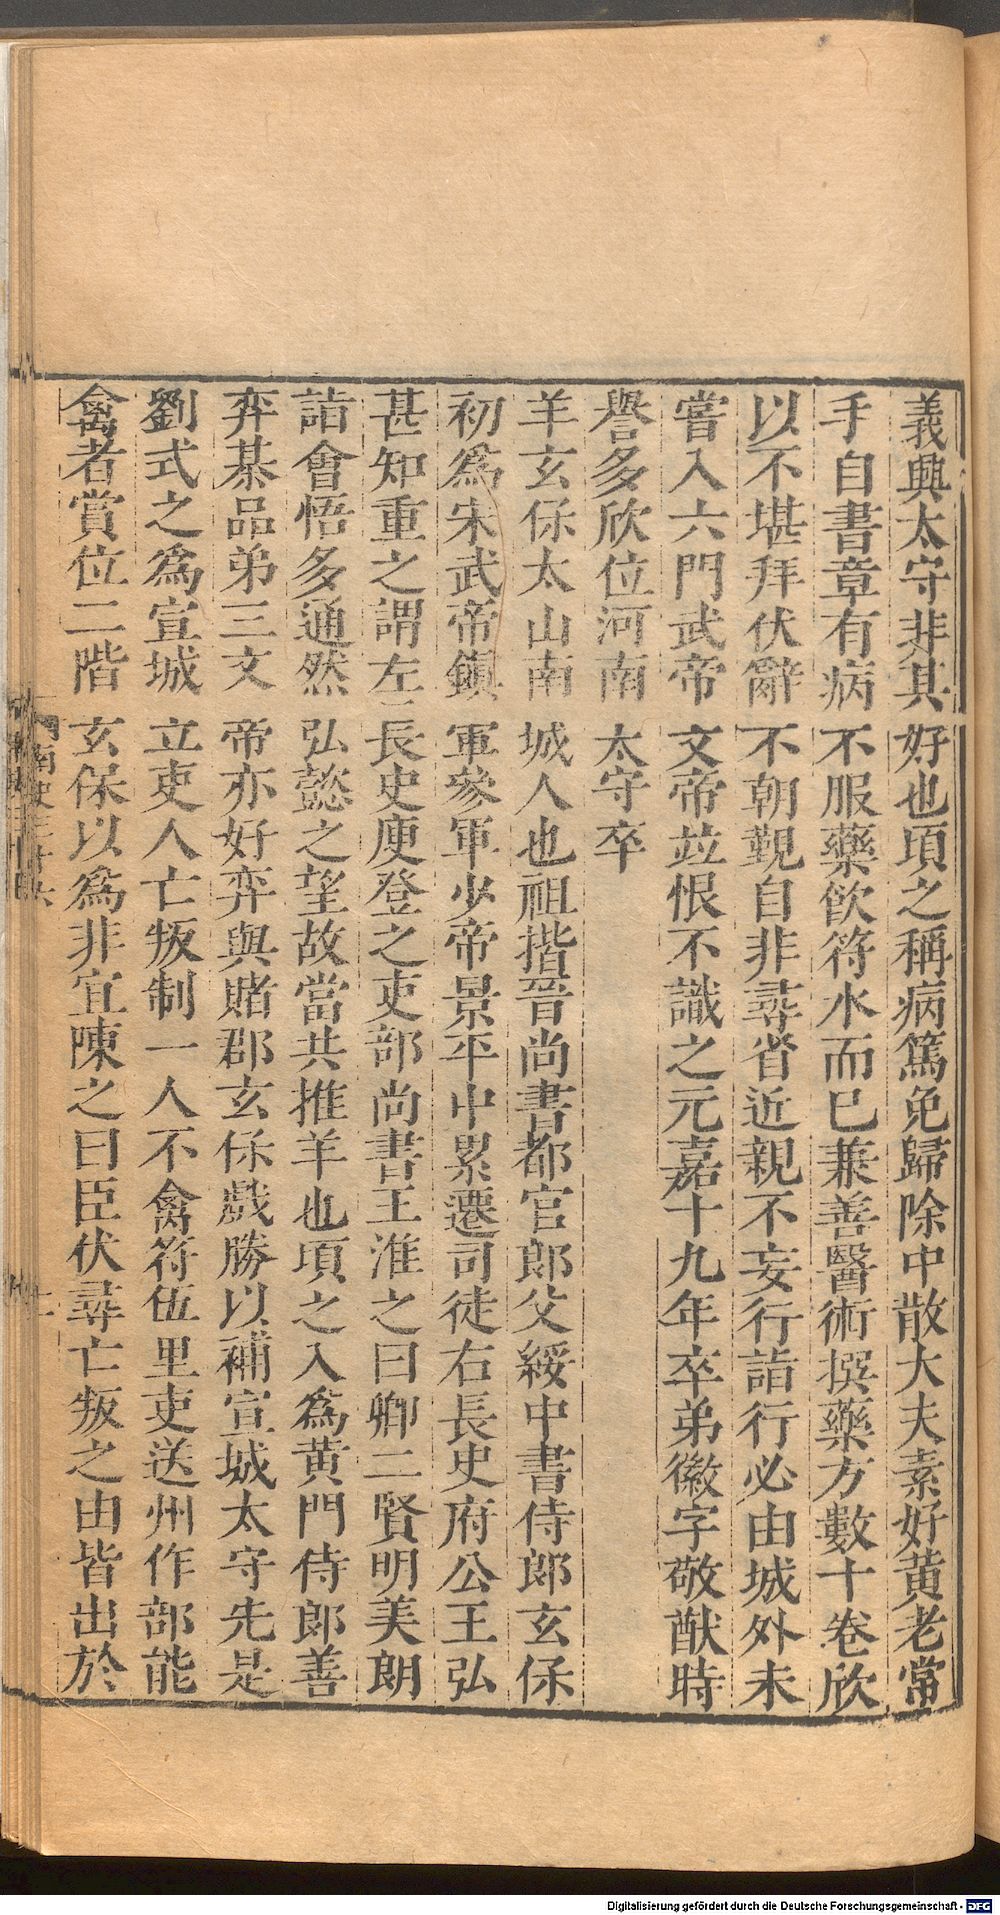 義興太守非其好也項之稱病篤免歸除中散大夫素好黄老常
手自書章有病不服藥飲符水而已兼善醫術撰藥方數十卷欣
以不堪拜伏辭不朝覲自非尋省近親不妄行詣行必由城外未
嘗入六門武帝文帝竝恨不識之元嘉十九年卒弟徽字敬猷時
譽多欣位河南太守卒
羊玄保太山南城人也祖揩晉尚書都官郎父綏中書侍郎玄保
初爲宋武帝鎮軍參軍少帝景平中累遷司徒右長史府公王弘
甚知重之謂左長史庾登之吏部尚書王淮之曰卿二賢明美朗
詣會悟多通然弘懿之望故當共推羊也項之入爲黄門侍郎善
弈棊品弟三文帝亦好弈與賭郡玄保戲勝以補宣城太守先是
劉式之爲宣城立吏人亡叛制一人不禽符伍里吏送州作部能
禽者賞位二階玄保以爲非宜陳之曰臣伏尋亡叛之由皆出於
南史三十六
Digitalisierung gefördert durch die Deutsche Forschungsgemeinschaft - DFG